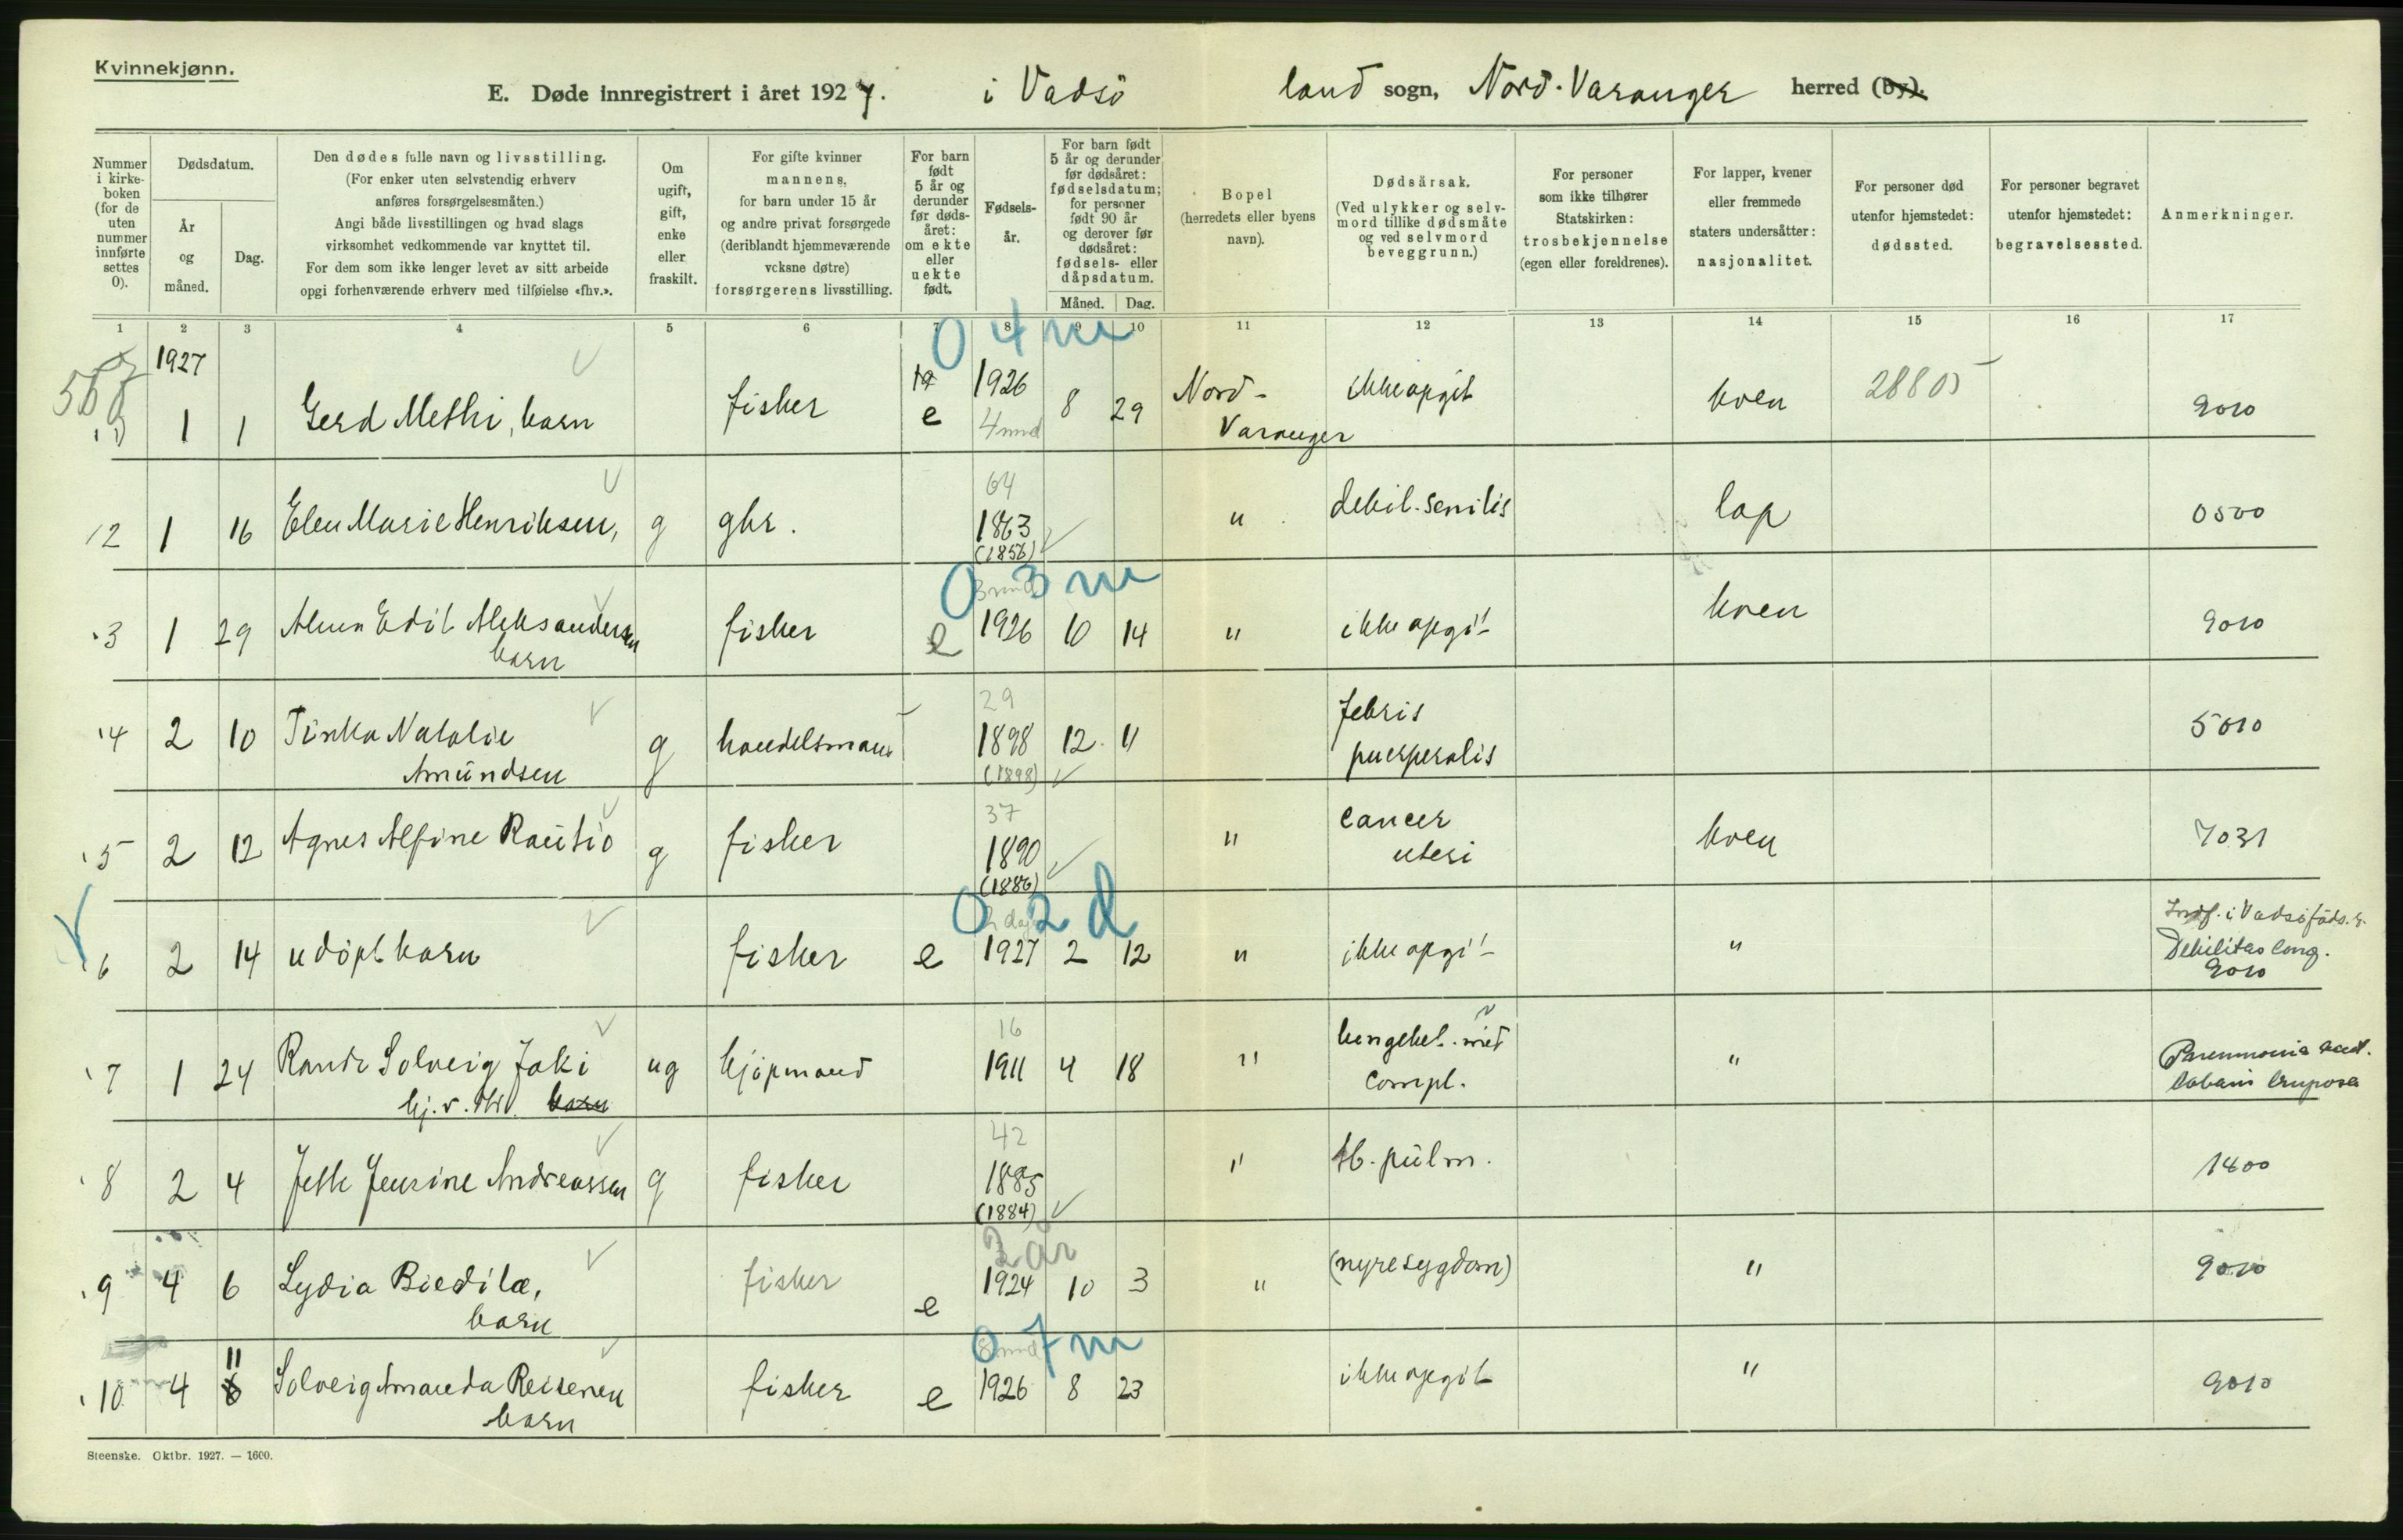 Kvinnekjønn.
E. Døde innregistrert i året 1927. i Vadsö land sogn, Nord-Varanger herred (by).
Nummer i kirke-boken (for de uten nummer innførte settes 0).
Dødsdatum.
År og måned.
Dag.
Den dødes fulle navn og livsstilling.
(For enker uten selvstendig erhverv
anføres forsørgelsesmåten.)
Angi både livsstillingen og hvad slags
virksomhet vedkommende var knyttet til.
For dem som ikke lenger levet av sitt arbeide
opgi forhenværende erhverv med tilføielse «fhv.».
Om ugift, gift, enke eller fraskilt.
For gifte kvinner
mannens,
for barn under 15 år
og andre privat forsørgede
(deriblandt hjemmeværende
voksne døtre)
forsørgerens livsstilling.
For barn født 5 år og derunder før døds-året: om ekte eller uekte født.
Fødsels-år.
For barn født
5 år og derunder
før dødsåret:
fødselsdatum;
for personer
født 90 år
og derover før
dødsåret:
fødsels- eller
dåpsdatum.
Måned. Dag.
Bopel
(herredets eller byens
navn).
Dødsårsak.
(Ved ulykker og selv-
mord tillike dødsmåte
og ved selvmord
beveggrunn.)
For personer
som ikke tilhører
Statskirken:
trosbekjennelse
(egen eller foreldrenes).
For lapper, kvener
eller fremmede
staters undersåtter:
nasjonalitet.
For personer død
utenfor hjemstedet:
dødssted.
For personer begravet
utenfor hjemstedet:
begravelsessted.
Anmerkninger.
1 2 3 4 5 6 7 8 9 10 11 12 13 14 15 16 17
0 4 m
1927
1 1 Gerd Methi, barn fisher e 1926 4 mnd 8 29 Nord-Varanger ikke opgit kven 28805 9010
64
2 1 16 Elen Marie Henriksen, g gbr. 1863 (1856) " debil. senilis lap 0500
0 3 m
3 1 29 Edit Aleksandersen barn fisher e 1926 10 14 " ikke opgit kven 9010
29
4 2 10 Tinka Natalie Amundsen g handelsmann 1898 (1898) 12 11 febris puerperalis 5010
37
5 2 12 Agnes Alfine Rautio g fisher 1890 (1886) " cancer uteri kven 7031
0 2 d
6 2 14 udöpt barn fisher e 1927 2 12 " ikke opgit " Debilitas cong. 9010
16
7 1 24 Solveig Jaki barn ug kjöpmand 1911 4 18 " compl. "
42
8 2 4 Andreassen g fisher 1885 (1884) " tb. pulm. 1400
år
9 4 6 Lydia Biedilæ, barn fisher e 1924 10 3 " (nyresygdom) " 9010
0 7 m
10 4 11 Solveig Amanda Reisenen barn fisher e 1926 8 23 ikke opgit " 9010
Steenske. Oktbr. 1927. — 1600.